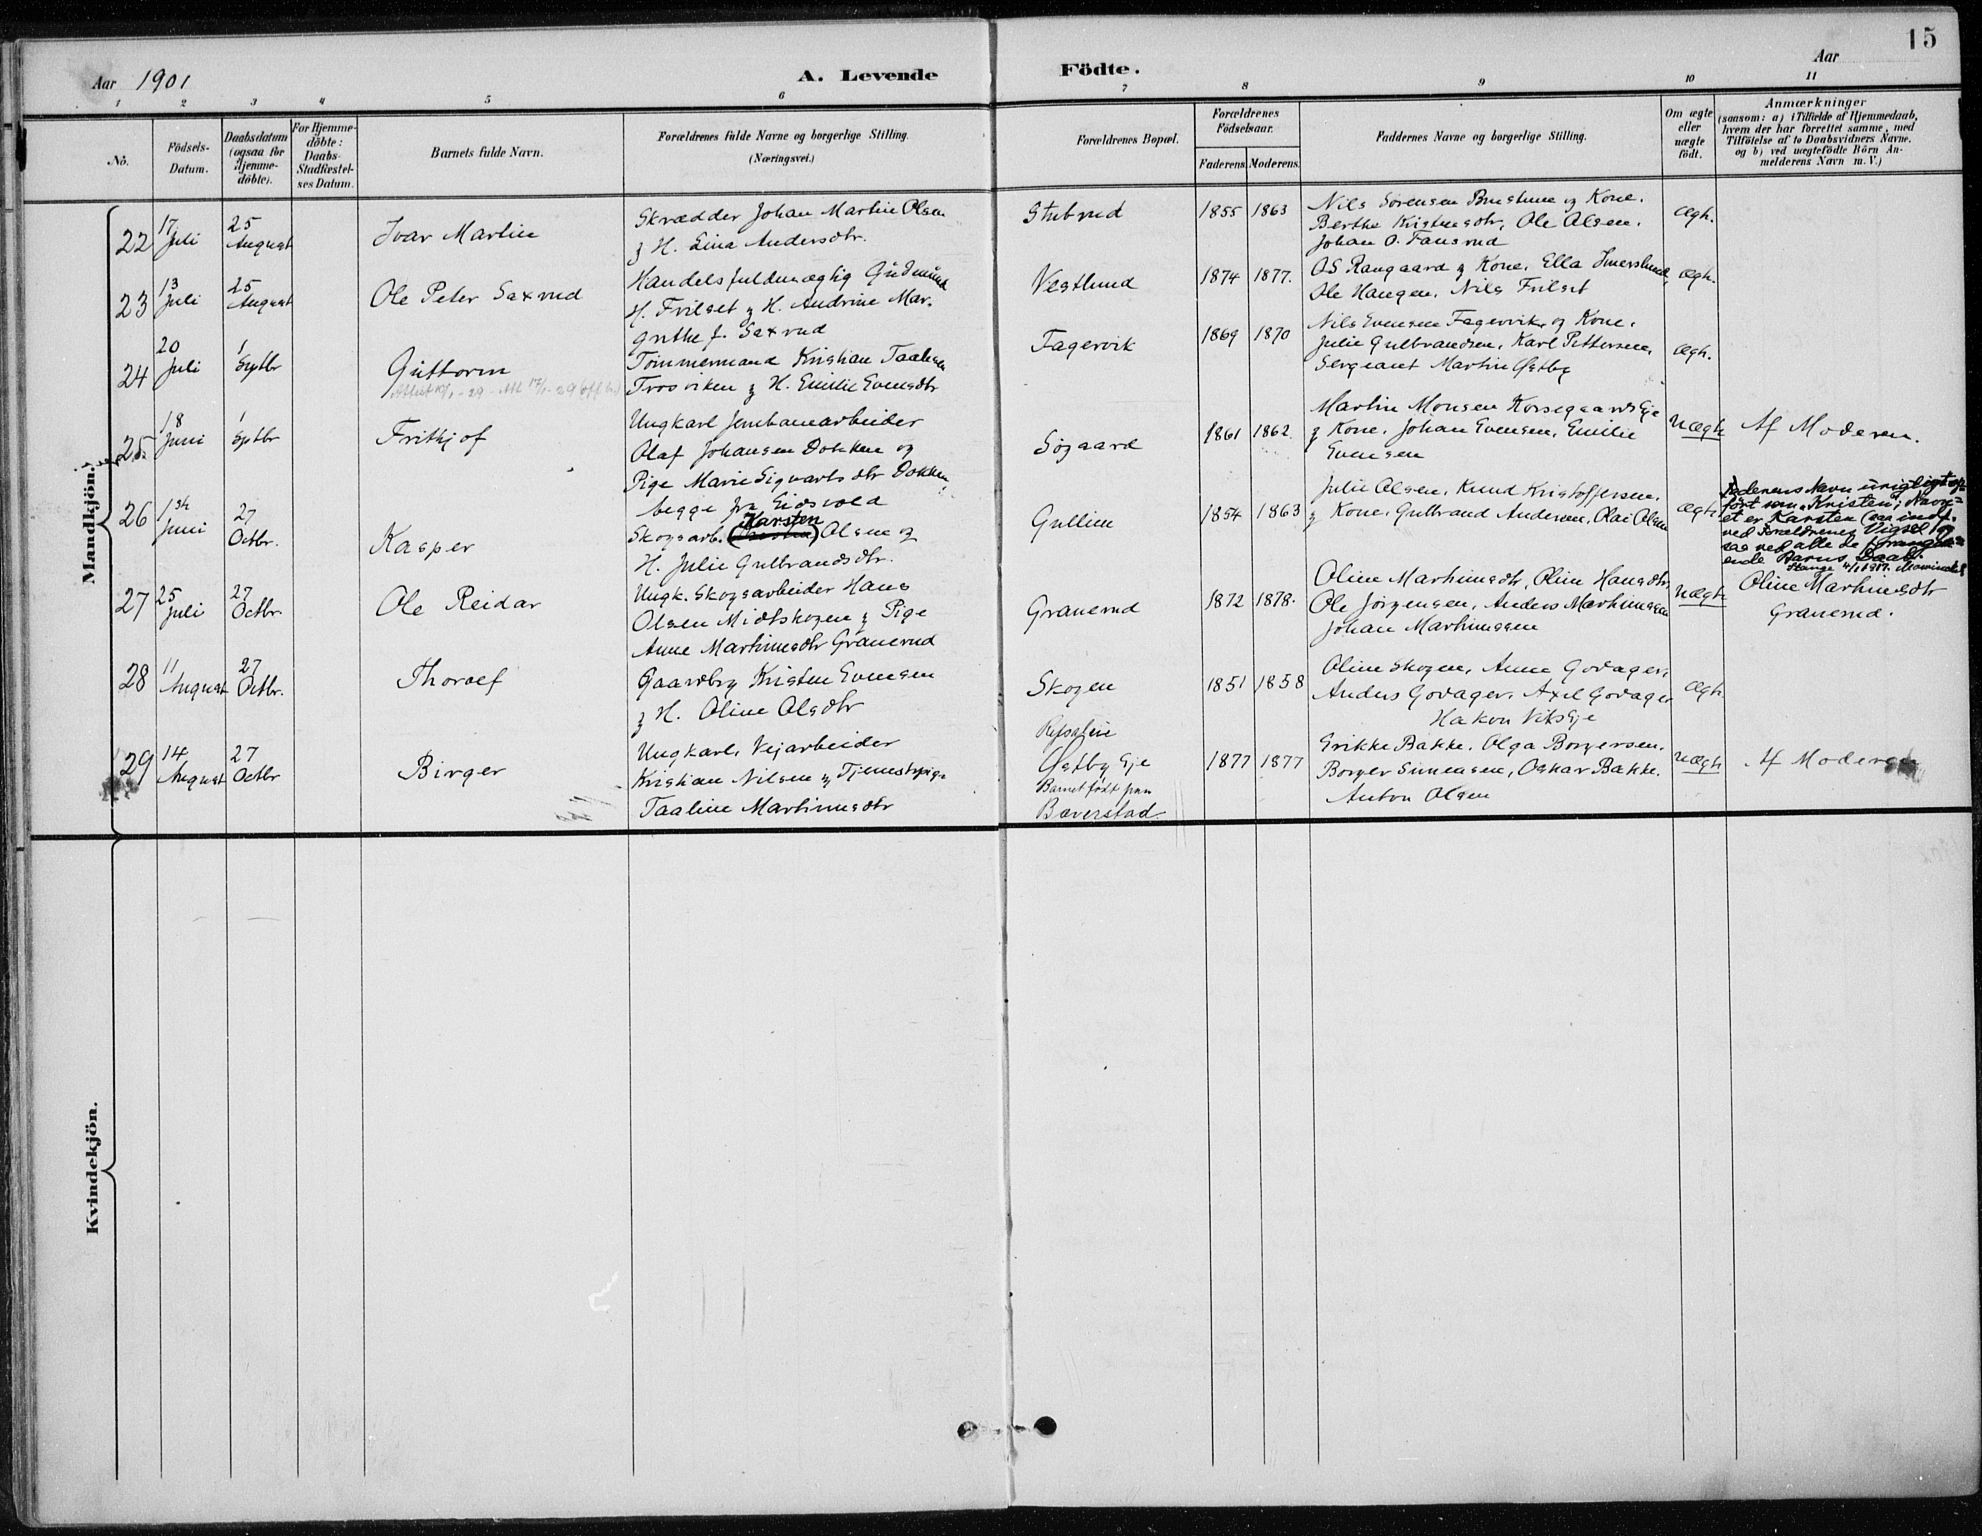 15
Aar 1901
A. Levende Födte.
Aar
1 2 3 4 5 6 7 8 9 10 11
No.
Födsels-Datum.
Daabsdatum (ogsaa for Hjemme-döbte).
For Hjemme-döbte: Daabs-Stadfæstel-ses Datum.
Barnets fulde Navn.
Forældrenes fulde Navne og borgerlige Stilling.
(Næringsvei.)
Forældrenes Bopæl.
Forældrenes Födselsaar.
Faderens. Moderens.
Faddernes Navne og borgerlige Stilling.
Om ægte eller uægte födt.
Anmærkninger
(saasom: a) i Tilfælde af Hjemmedaab,
hvem der har forrettet samme, med
Tilföielse af to Daabsvidners Navne.
og b) ved uægtefödte Börn An-
melderens Navn m. V.)
Mandkjön.
22 17 Juli 25 August
Ivar Martin
Skrædder Johan Martin Olsen
og H. Lina Andersdtr.
Stubrud
1855 1863
Nils Sörensen og Kone.
Berthe Kristensdtr, Ole Olsen.
Johan O. Fansrud
Ægte.
23 13 Juli 25 August
Ole Peter Saxrud
Handelsfuldmægtig Gudmund
H. Frilset og H. Andrine Mar-
grethe f. Saxrud
Vestlund
1874 1877.
OS Rangaard og Kone. Ella Imerslund,
Ole Haugen, Nils Frilset
Ægte.
24 20 Juli 1 Septbr
Guttorm
Tömmermand Kristian Taalesen
Trosviken og H. Emilie Evensdtr
Fagervik
1869 1870
Nils Evensen Fagervik og Kone.
Julie Gulbrandsen, Karl Pettersen,
Sergeant Martin Østby
Ægte.
25 18 Juni 1 Septbr
Frithjof
Ungkarl Jernbanearbeider
Olaf Johansen Dokken og
Pige Marie Sigvartsdtr Dokken
begge fra Eidsvold
Søgaard
1861 1862.
Martin Monsen Korsegaards Eje
og Kone. Johan Evensen, Emilie
Evensen
Uægte
Af Moderen.
26 Juni 27 Octbr.
Kasper
Skogsarb. Karsten Olsen og
H. Julie Gulbrandsdtr.
Gullien
1854 1863
Julie Olsen. Knud Kristoffersen.
og Kone. Gulbrand Andersen. Olai Olsen
Ægte
Faderens Navn urigtigt op-
fört som "Kristen"; Navn-
et er Karsten (saa indf.
ved Forældrenes Vigsel og
saa ved alle de
ende Barns Daab.
Stange
27 25 Juli 27 Octbr.
Ole Reidar
Ungk. Skogsarbeider Hans
Olsen Midtskogen og Pige
Anne Martinusdtr Granerud
Granerud
1872 1878.
Oline Martinusdtr, Oline Hansdtr
Ole Jørgensen, Anders Martinussen
Johan Martinussen
Uægte
Oline Martinusdtr
Granerud.
28 11 August 27 Octbr.
Thoralf
Gaardbr Kristen Evensen
og H. Oline Olsdtr
Skogen
1851 1858
Oline Skogen, Anne Godager.
Anders Godager. Axel Godager
Hakon Viks Eje
Ægte
29 14 August 27 Octbr
Birger
Ungkarl. Vejarbeider
Kristian Nilsen og Tjenestepige
Taaline Martinusdtr
Østby Eje
Barnet födt paa
Bæverstad
1877 1877
Grikke Bakke. Olga Borgersen.
Borger Simensen, Oskar Bakke.
Anton Olsen
Uægte
Af Moderen
Kvindekjön.